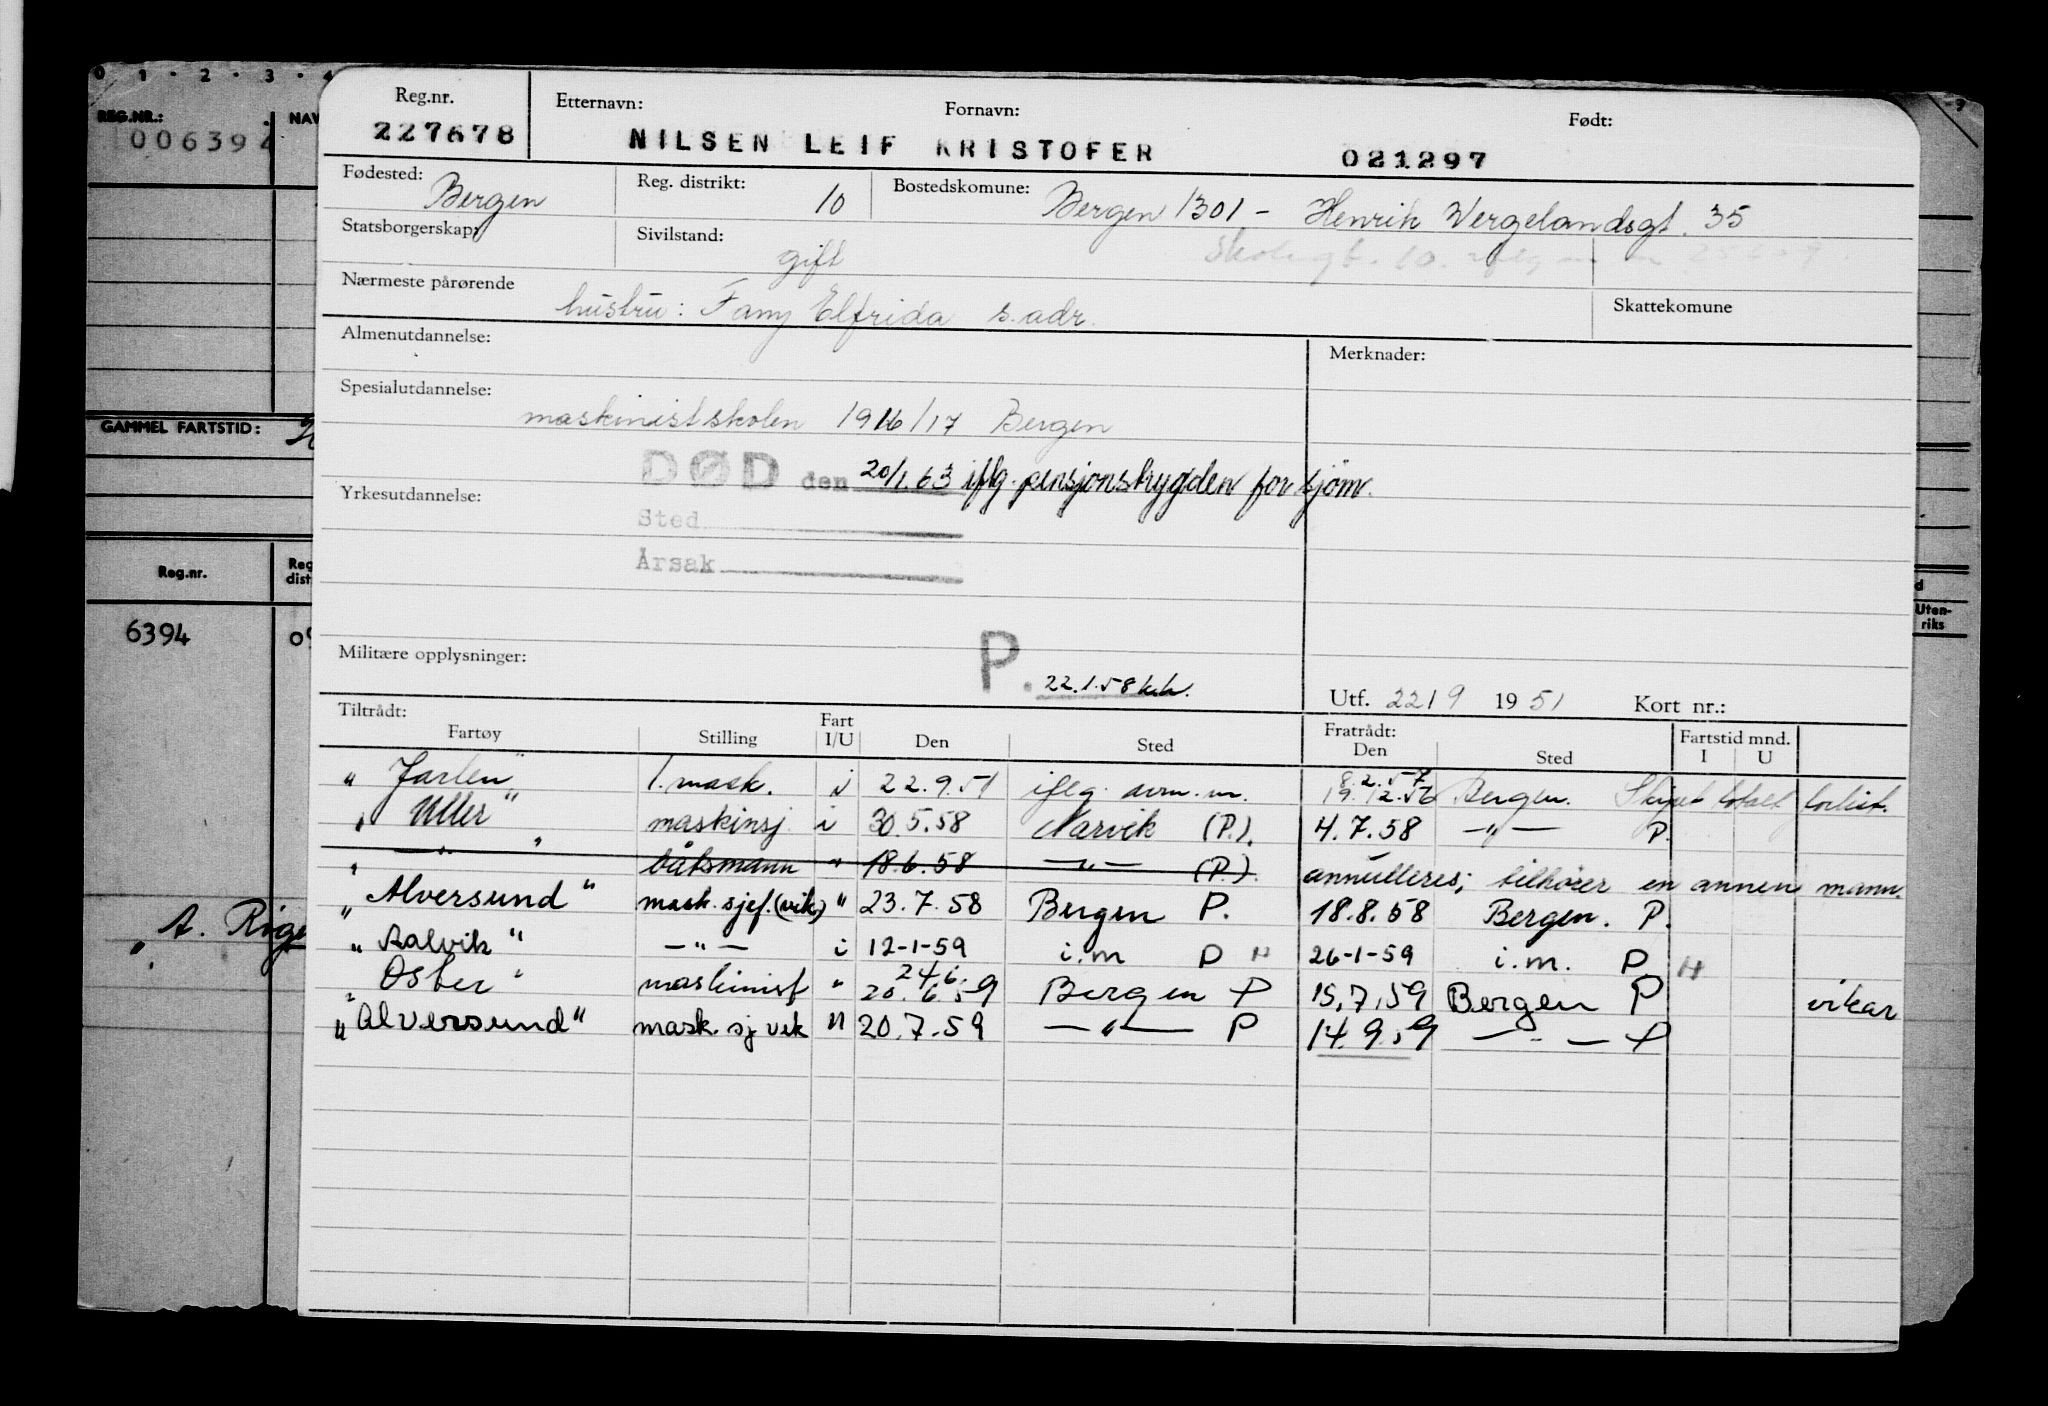 0 1 · 2 · 3 · 4
REG.NR.: NAV
006394
GAMMEL FARTSTID:
Reg.nr. Reg dist
6394 09
„ A. Røge
9
d
Uten-
riks
Reg.nr. Etternavn: Fornavn: Født:
227678 NILSEN LEIF KRISTOFER 021297
Fødested: Bergen Reg. distrikt: 10 Bostedskomune: Bergen 1301 - Henrik Wergelandsgt. 35
Statsborgerskap: Sivilstand: gift Skolegt. 10.
Nærmeste pårørende hustru: Fanny Elfrida s. adr. Skattekomune
Almenutdannelse: Merknader:
Spesialutdannelse: maskinistskolen 1916/17 Bergen
DØD den 20/1.63 iflg. pensjonstrygden for sjøm.
Yrkesutdannelse:
Sted
Årsak
Militære opplysninger: P. 22.1.58
Utf. 22/9 1951 Kort nr.:
Tiltrådt: Fratrådt: Fartstid mnd.
Fartøy Stilling Fart I/U Den Sted Den Sted I U
" Jarlen" 1. mask. i 22.9.51 iflg. 8.2.57 19.12.56 Bergen. Skipet totalt forlist.
" Uller" maskinsj. i 30.5.58 Narvik (P.). 4.7.58 —"— P.
" —"— " båtsmann " 18.6.58 —"— (P.). annulleres; tilhører en annen mann.
" Alversund" mask.sjef.(vik.) " 23.7.58 Bergen P. 18.8.58 Bergen. P.
" Aalvik" —"— i 12-1-59 i.m P H 26-1-59 i.m. P H
" Oster" maskinist " 24/6. 20.6.59 Bergen P 15.7.59 Bergen P vikar
"Alversund" mask. sj vik " 20.7.59 —"— P 14.9.59 —"— P